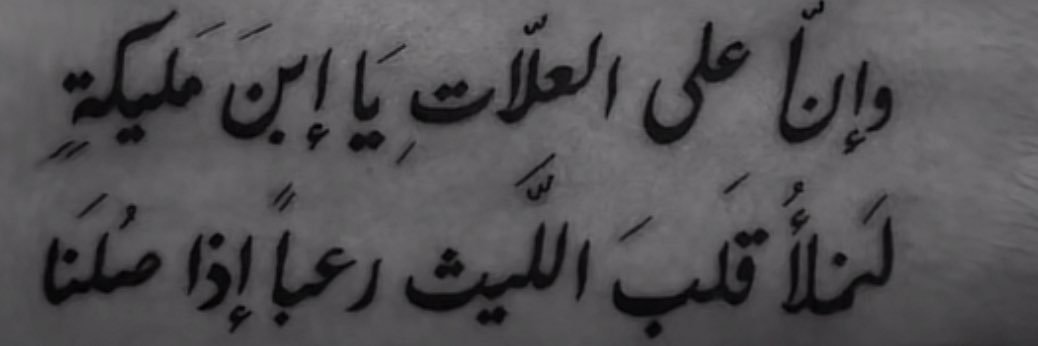 وإنّا على العلّاتِ يَا إبنَ مَليكةٍ
لَنملأُ قَلبَ اللَّيث رعباً إذا صُلنَا